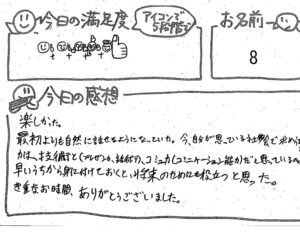 今日の満足度
アイコンで
5段階で
お名前
8
今日の感想
楽しかった。
最初よりも自然に話せるようになっていた。今、自分が思っている社会で求め
力は、技術とプレゼン力、話す力、コミュ力(コミュニケーション能力)だと思っている
早いうちから身に付けておくと、将来のためにも役立つと思った。
貴重なお時間、ありがとうございました。